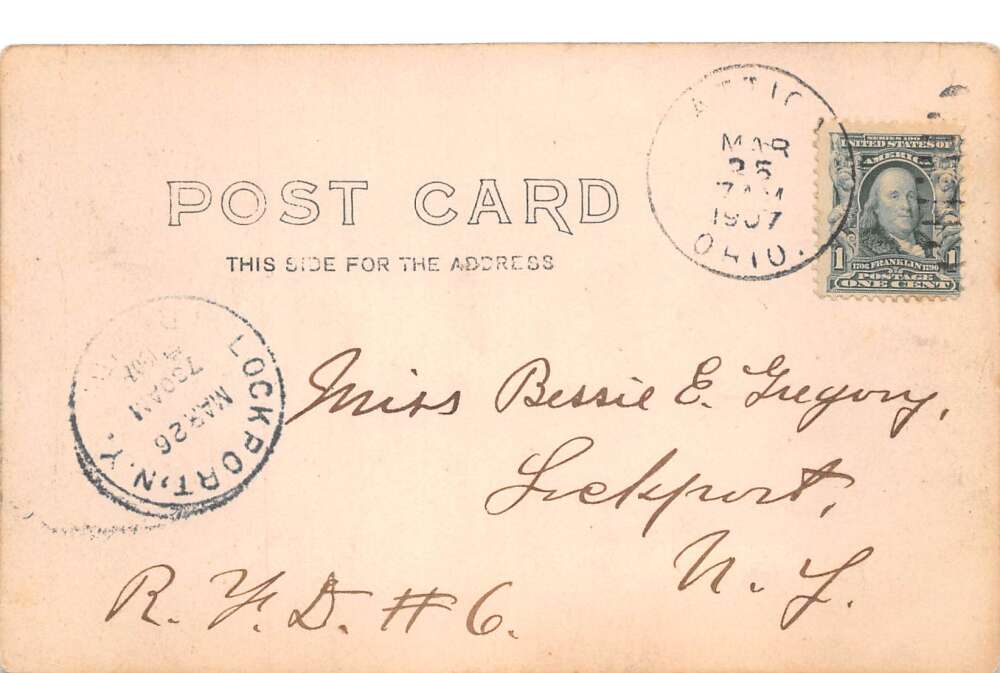 POST CARD
THIS SIDE FOR THE ADDRESS
MAR
25
7 AM
1907
OHIO.
SERIES 1902
UNITED STATES OF
AMERICA
1 1706 FRANKLIN 1790 1
POSTAGE
ONE CENT
LOCKPORT, N.Y.
MAR 26
730 AM
Miss Bessie E. Gregory,
Lockport,
N. Y.
R. F. D. # 6.